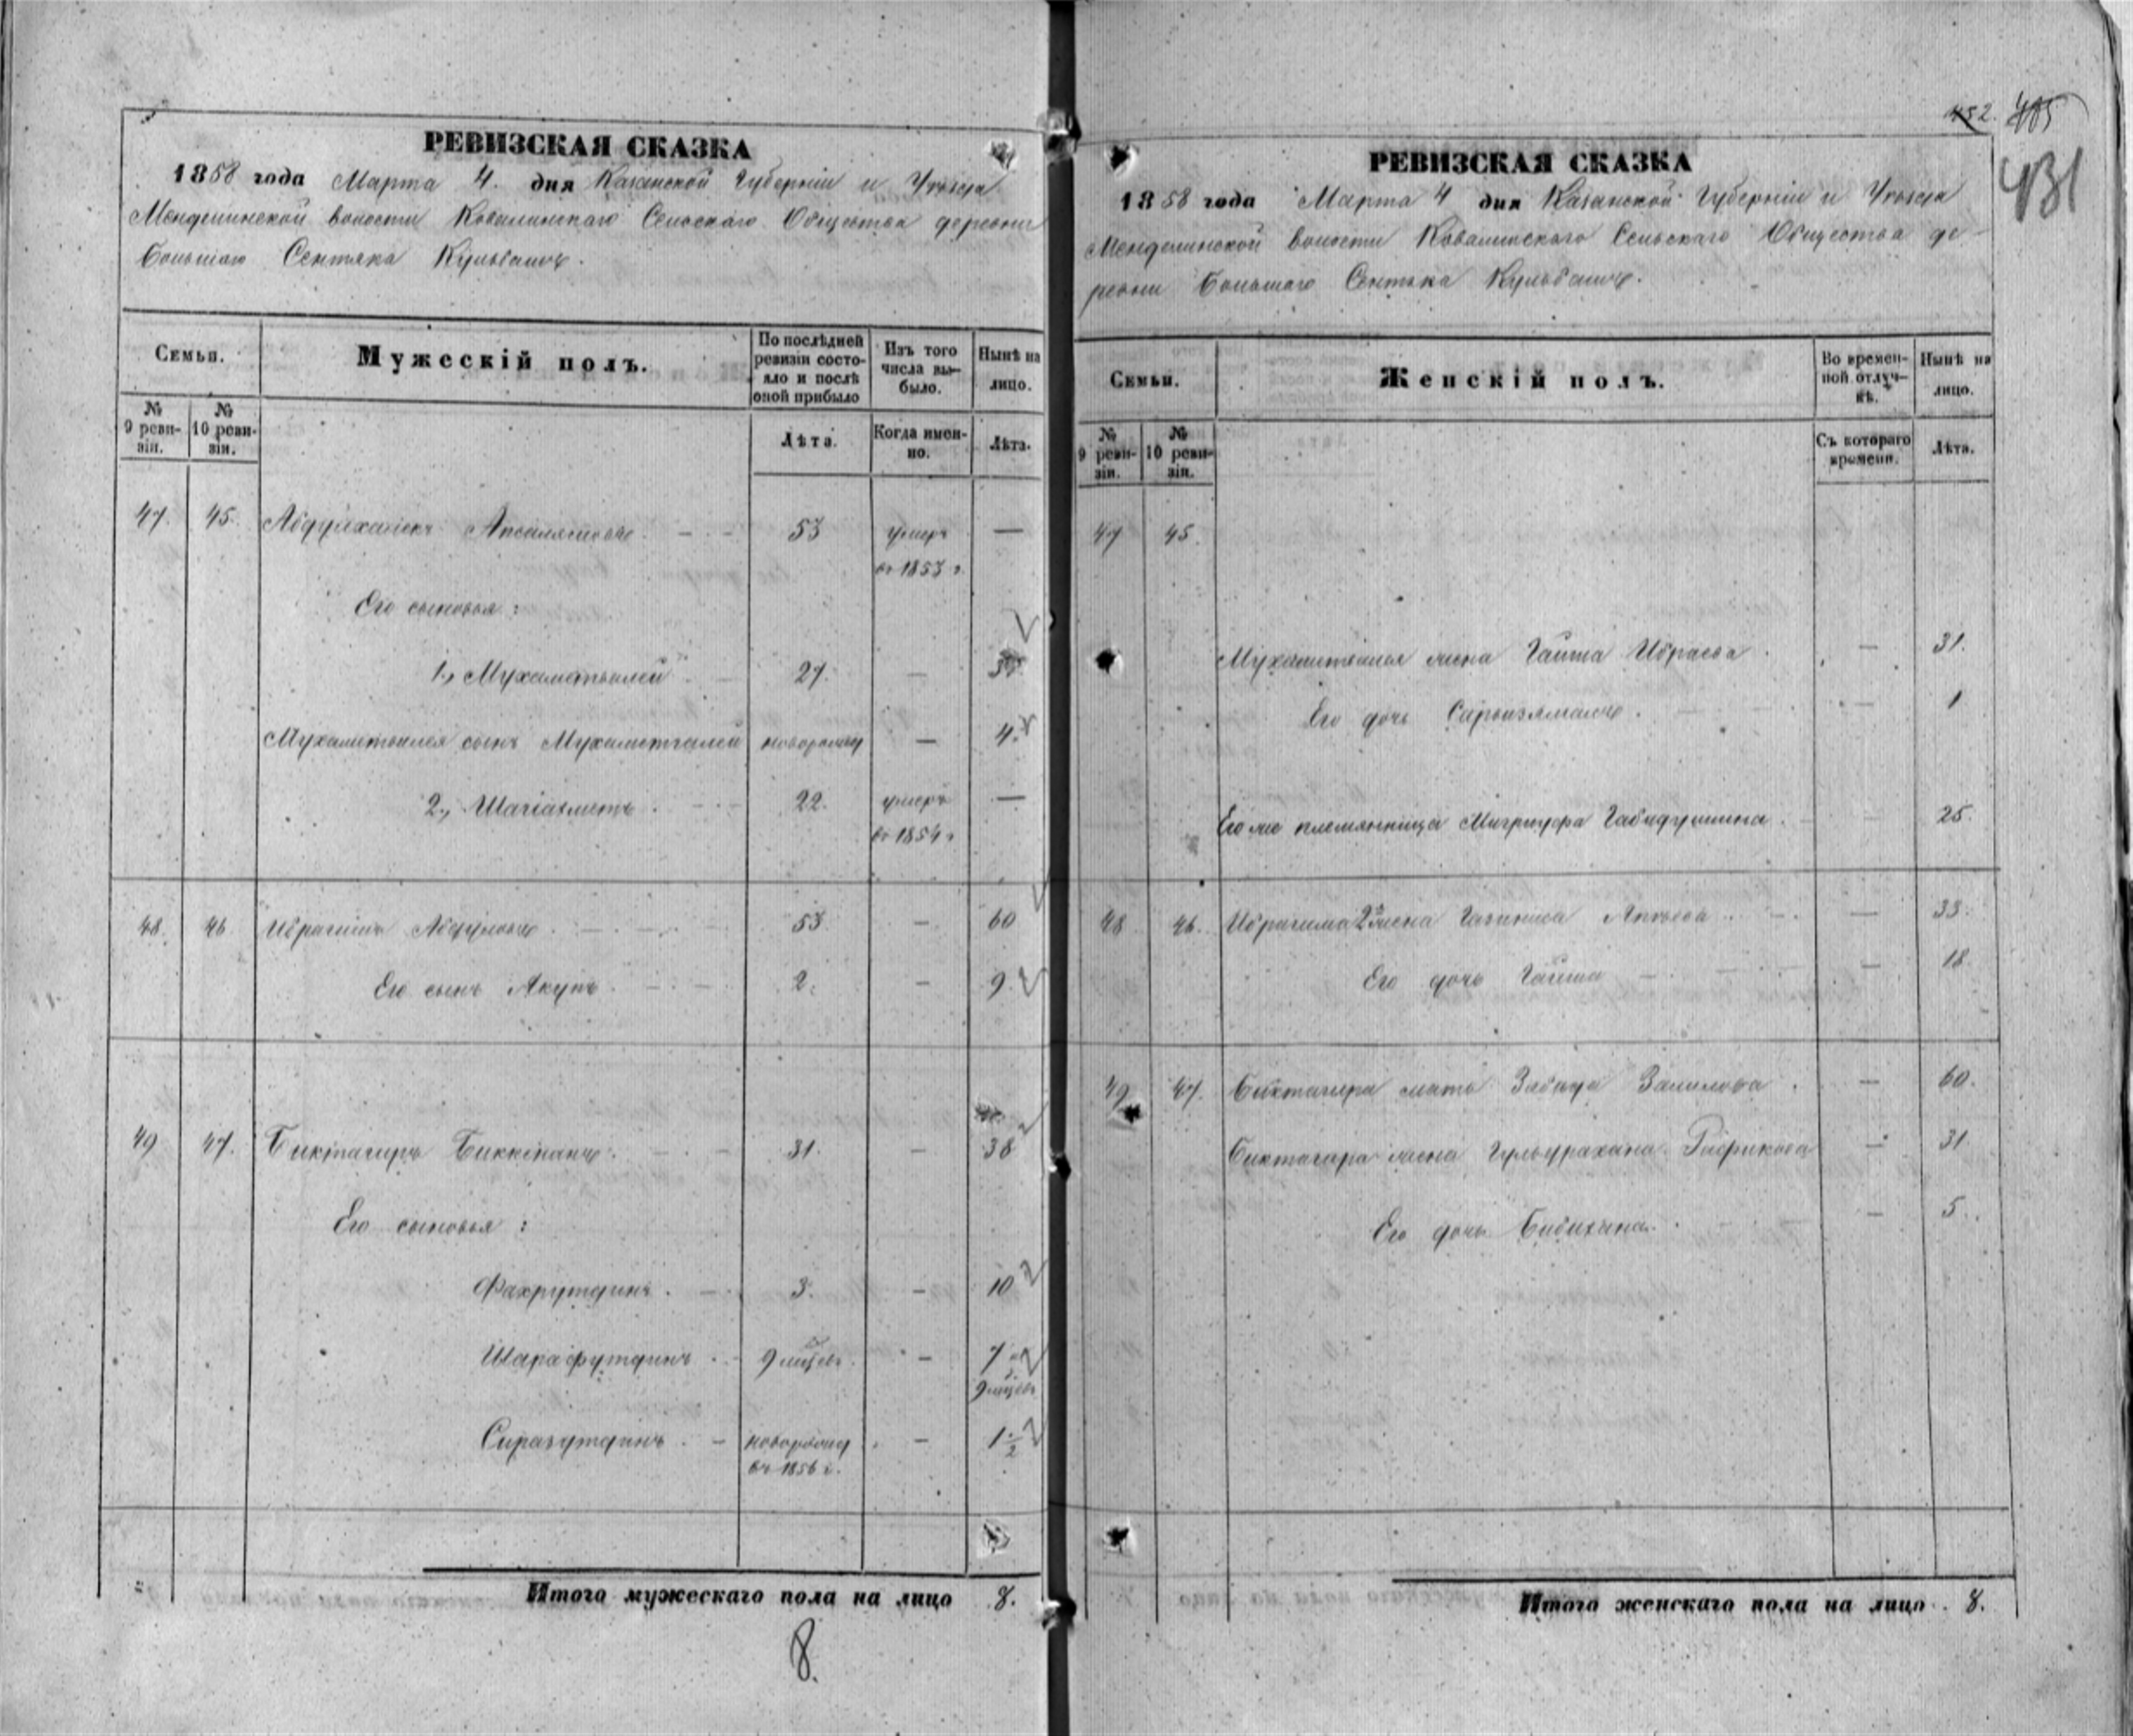 РЕВИЗСКАЯ СКАЗКА
1858 года Марта 4. дня Казанской Губерніи и Уѣзда
Менделинской волости Ковалинскаго Сельскаго Общества деревни
Большаго Сентяка Кульбашъ.
Семьи.
Мужескій полъ.
По послѣдней ревизіи состояло и послѣ оной прибыло
Изъ того числа выбыло.
Нынѣ на лицо.
№ 9 ревизіи.
№ 10 ревизіи.
Лѣта.
Когда именно.
Лѣта.
47. 45. Абдулхалікъ 53 умеръ —
въ 1853 г.
Его сыновья:
1., Мухаметвалей 27. —
Мухаметвалея сынъ Мухаметгалей новорожд — 4.
2., Шагіахметъ 22. умеръ —
въ 1854 г
48. 46 Ибрагимъ Абдуловъ 53. — 60
Его сынъ Якупъ 2. — 9.
49 47. Биктагиръ Биккинанъ 31. — 38
Его сыновья:
Фахрутдинъ 3. — 10
Шарафутдинъ 9 мѣсяц. — 7
9 мѣсяц.
Сиразутдинъ новорожд — 1 1/2
въ 1856 г.
Итого мужескаго пола на лицо 8.
8.
452. 405
431
РЕВИЗСКАЯ СКАЗКА
1858 года Марта 4 дня Казанской Губерніи и Уѣзда
Менделинской волости Ковалинскаго Сельскаго Общества де-
ревни Большаго Сентяка Кульбашъ.
Семьи.
Женскій полъ.
Во временной отлучкѣ.
Нынѣ на лицо.
№ 9 ревизіи.
№ 10 ревизіи.
Съ котораго времени.
Лѣта.
47 45.
Мухаметвалея жена Гайша Ибраева — 31.
Его дочь Сарбизямалъ — 1
Его же племянница Габидуллина 25.
48 46. Ибрагима 2я жена — 33.
Его дочь Гайша — 18
49 47. Биктагира мать Забида — 60.
Биктагира жена — 31
Его дочь Бибихана — 5.
Итого женскаго пола на лицо 8.